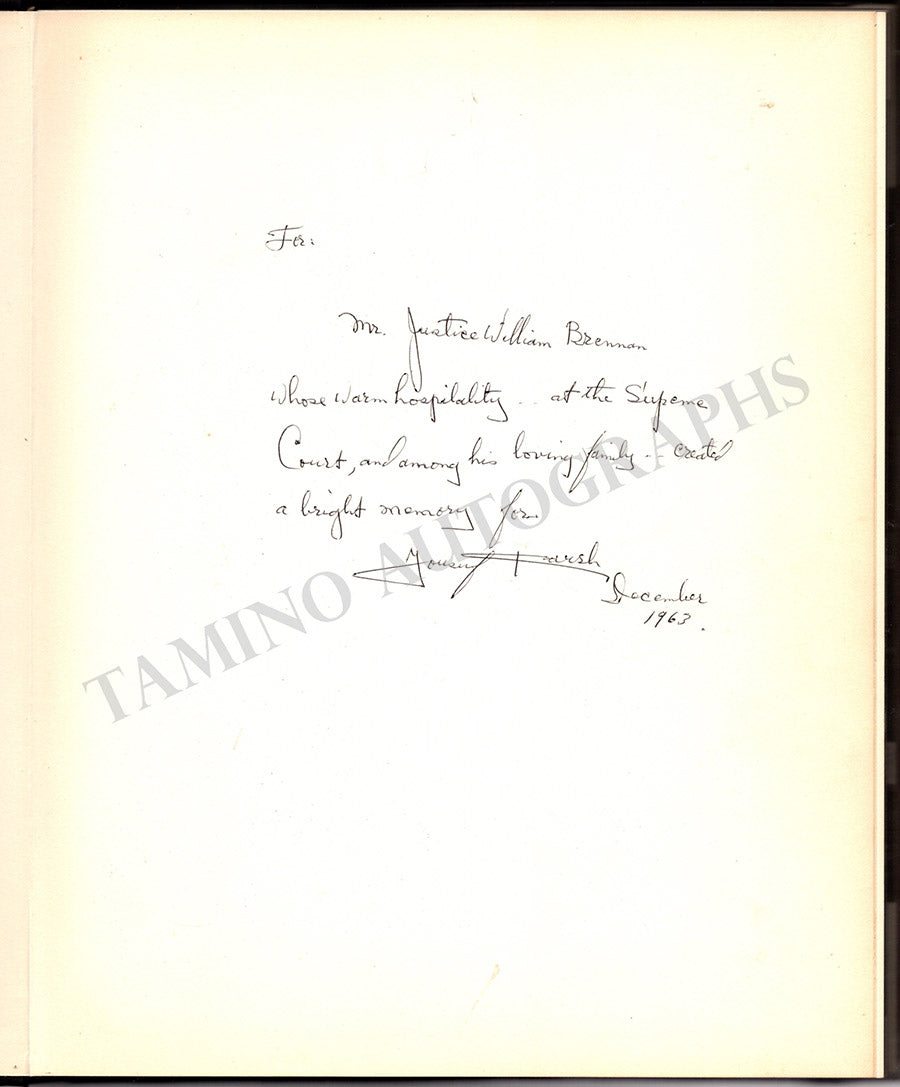 For:
Mr. Justice William Brennan
whose warm hospitality -- at the Supeme
Court, and among his loving family -- created
a bright memory for
Yousuf Karsh
December
1963.
TAMINO AUTOGRAPHS